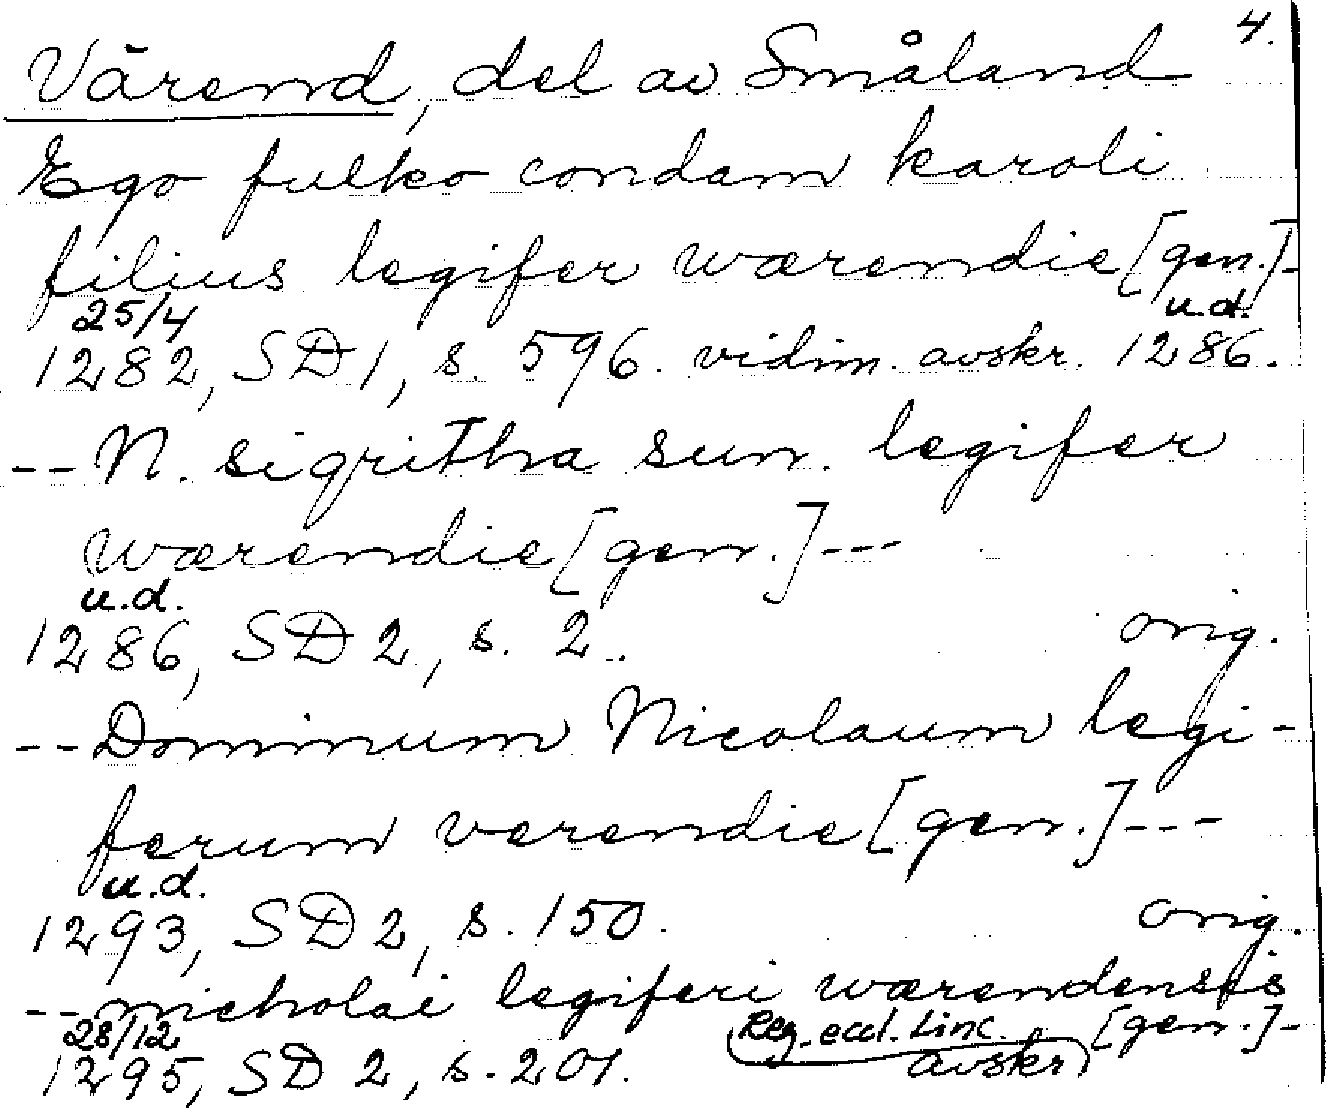 4.
Värend, del av Småland
Ego fulko condam karoli
filius legifer wærendie [gen.]-
25/4 u.d.
1282, SD 1, s. 596. vidim. avskr. 1286.
-- N. sigritha sun. legifer
wærendie [gen.] ---
u.d.
1286, SD 2, s. 2. orig.
-- Dominum Nicolaum legi-
ferum værendie [gen.] ---
u.d.
1293, SD 2, s. 150. orig.
-- nicholai legiferi wærendensis
28/12 Reg. eccl. Linc. [gen.]-
1295, SD 2, s. 201. avskr